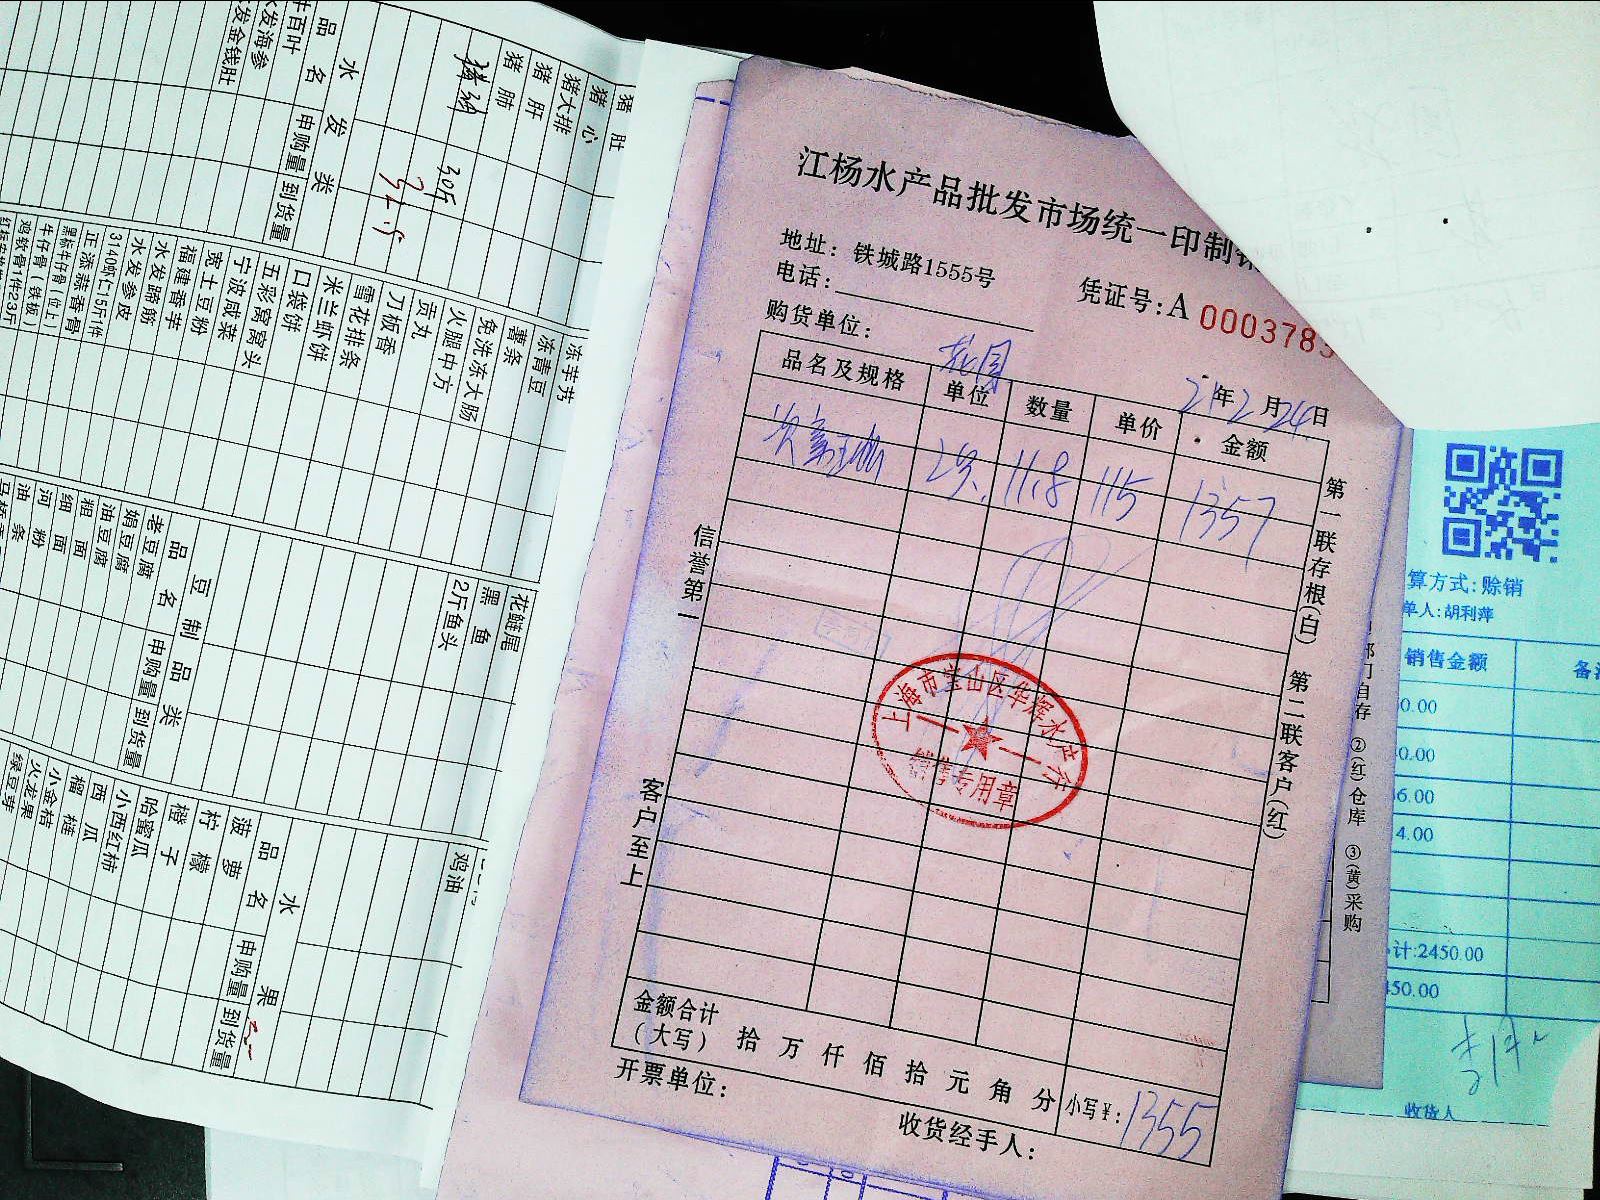 江杨水产品批发市场统一印制
地址：铁城路1555号
电话：
凭证号：A 000378
购货单位：花园
21年2月24日
品名及规格 单位 数量 单价 金额
2只 11.8 115 1357
信誉第一
客户至上
第一联存根(白) 第二联客户(红)
上海市宝山区华辉水产行
销售专用章
金额合计
（大写） 拾 万 仟 佰 拾 元 角 分 小写¥：1355
开票单位：
收货经手人：
部门自存 ②(红)仓库 ③(黄)采购
算方式：赊销
单人：胡利萍
销售金额
计：2450.00
450.00
收货人
猪肚
猪心
猪大排
猪肝
猪肺
30斤
水发类
品名 申购量 到货量
牛百叶
水发海参
水发金钱肚
冻芋艿
冻青豆
薯条
免洗冻大肠
火腿中方
贡丸
刀板香
雪花排条
米兰虾饼
口袋饼
五彩窝窝头
宁波咸菜
宽土豆粉
福建香芋
水发蹄筋
水发参皮
3140虾仁15斤/件
正添蒜香骨
黑标牛仔骨（位上）
牛仔骨（铁板）
鸡软骨1件23斤
花鲢尾
黑鱼
2斤鱼头
豆制品类
品名 申购量 到货量
老豆腐
娟豆腐
油豆腐
粗面
细面
河粉
油条
鸡油
水果
品名 申购量 到货量
菠萝
柠檬
橙子
哈蜜瓜
小西红柿
西瓜
榴梿
小金桔
火龙果
绿豆芽